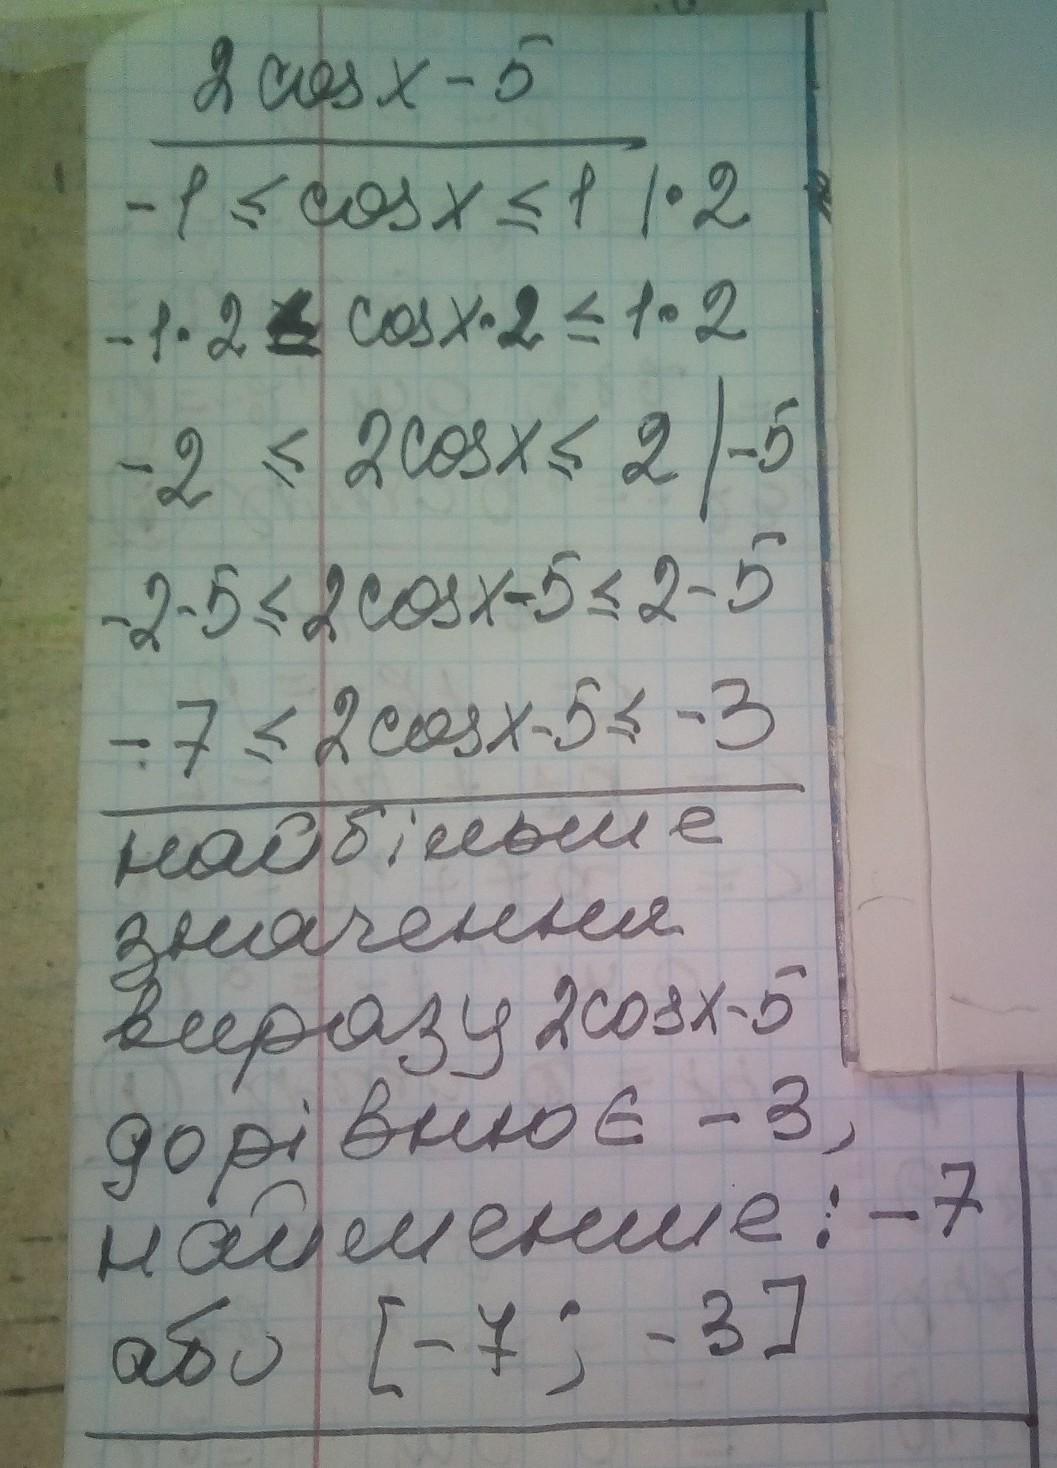 2cosx - 5
-1 ≤ cosx ≤ 1 |·2
-1·2 ≤ cosx·2 ≤ 1·2
-2 ≤ 2cosx ≤ 2 |-5
-2-5 ≤ 2cosx-5 ≤ 2-5
-7 ≤ 2cosx-5 ≤ -3
найбільше
значення
виразу 2cosx-5
дорівнює -3,
найменше: -7
або [-7; -3]